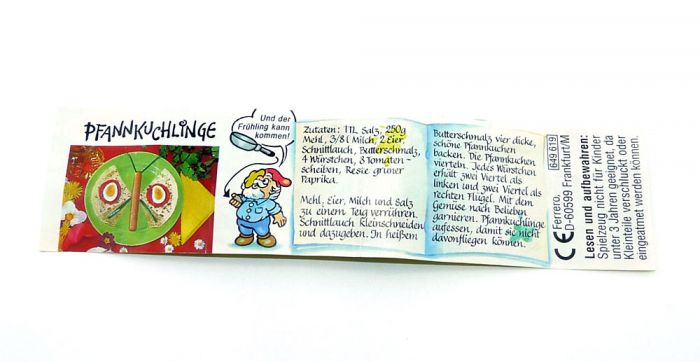 PFANNKUCHLINGE
Und der
Frühling kann
kommen!
Zutaten: 1TL Salz, 250g
Mehl, 3/8l Milch, 2 Eier,
Schnittlauch, Butterschmalz,
4 Würstchen, 8 Tomaten-
scheiben, Reste grüner
Paprika.
Mehl, Eier, Milch und Salz
zu einem Teig verrühren.
Schnittlauch kleinschneiden
und dazugeben. In heißem
Butterschmalz vier dicke,
schöne Pfannkuchen
backen. Die Pfannkuchen
vierteln. Jedes Würstchen
erhält zwei Viertel als
linken und zwei Viertel als
rechten Flügel. Mit dem
Gemüse nach Belieben
garnieren. Pfannkuchlinge
aufessen, damit sie nicht
davonfliegen können.
649 619
CE Ferrero,
D-60599 Frankfurt/M
Lesen und aufbewahren:
Spielzeug nicht für Kinder
unter 3 Jahren geeignet, da
Kleinteile verschluckt oder
eingeatmet werden können.